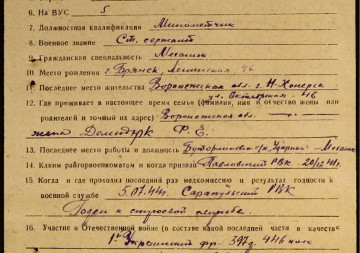 6. На ВУС 5
7. Должностная квалификация Минометчик
8. Военное звание Ст. сержант
9. Гражданская специальность Механик
10. Место рождения г. Брянск,
11. Последнее место жительства Воронежская обл. г. Н-Хоперск
ул. Октябрьская
12. Где проживает в настоящее время семья (фамилия, имя и отчество жены или
родителей и точный их адрес) Воронежская обл.
жена Ф. Е.
13. Последнее место работы и должность
14. Каким райгорвоенкоматом и когда призван РВК
15. Когда и где проходил последний раз медкомиссию и результат годности к
военной службе 5.07.44г. Сарапульский РВК
Годен к строевой службе.
16. Участие в Отечественной войне (в составе какой последней части в качестве
1й Украинский фр. 397д. 446 полк